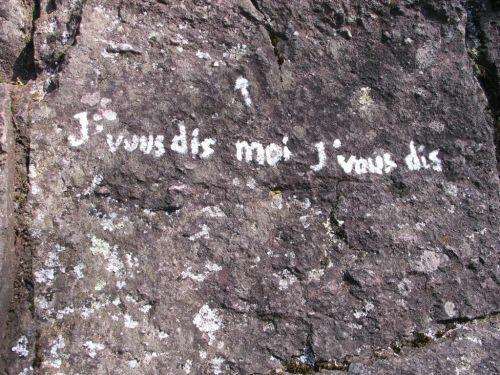 J'vous dis moi j'vous dis